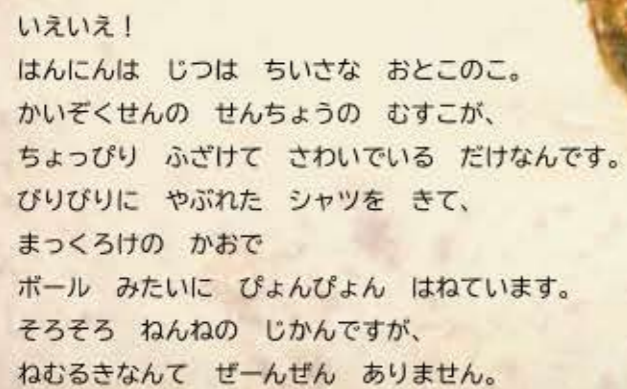 いえいえ！
はんにんは　じつは　ちいさな　おとこのこ。
かいぞくせんの　せんちょうの　むすこが、
ちょっぴり　ふざけて　さわいでいる　だけなんです。
びりびりに　やぶれた　シャツを　きて、
まっくろけの　かおで
ボール　みたいに　ぴょんぴょん　はねています。
そろそろ　ねんねの　じかんですが、
ねむるきなんて　ぜーんぜん　ありません。